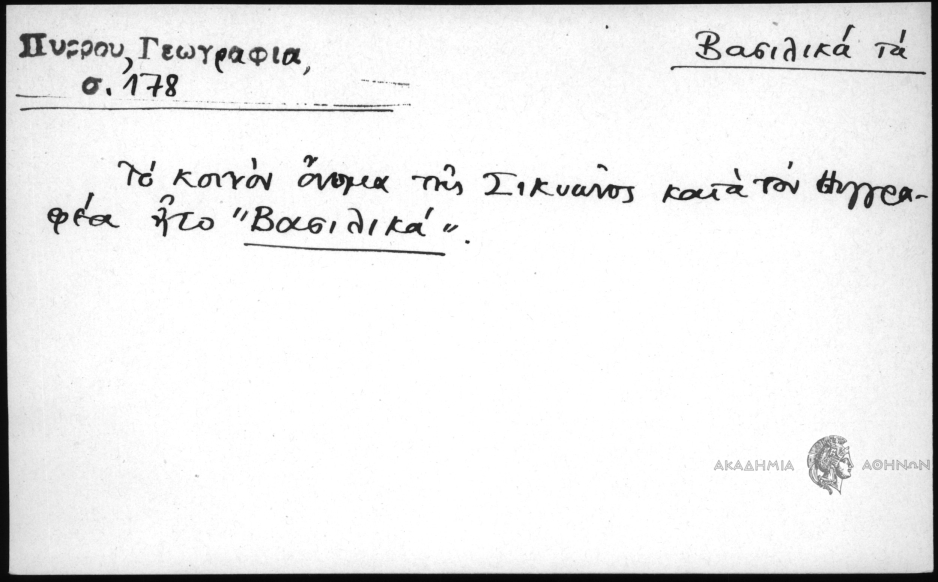 Πυρρου, Γεωγραφια,
σ. 178
Βασιλικά τά
Τό κοινόν ὄνομα τῆς Σικυῶνος κατὰ τόν συγγρα-
φέα ἦτο "Βασιλικά".
ΑΚΑΔΗΜΙΑ ΑΘΗΝΩΝ